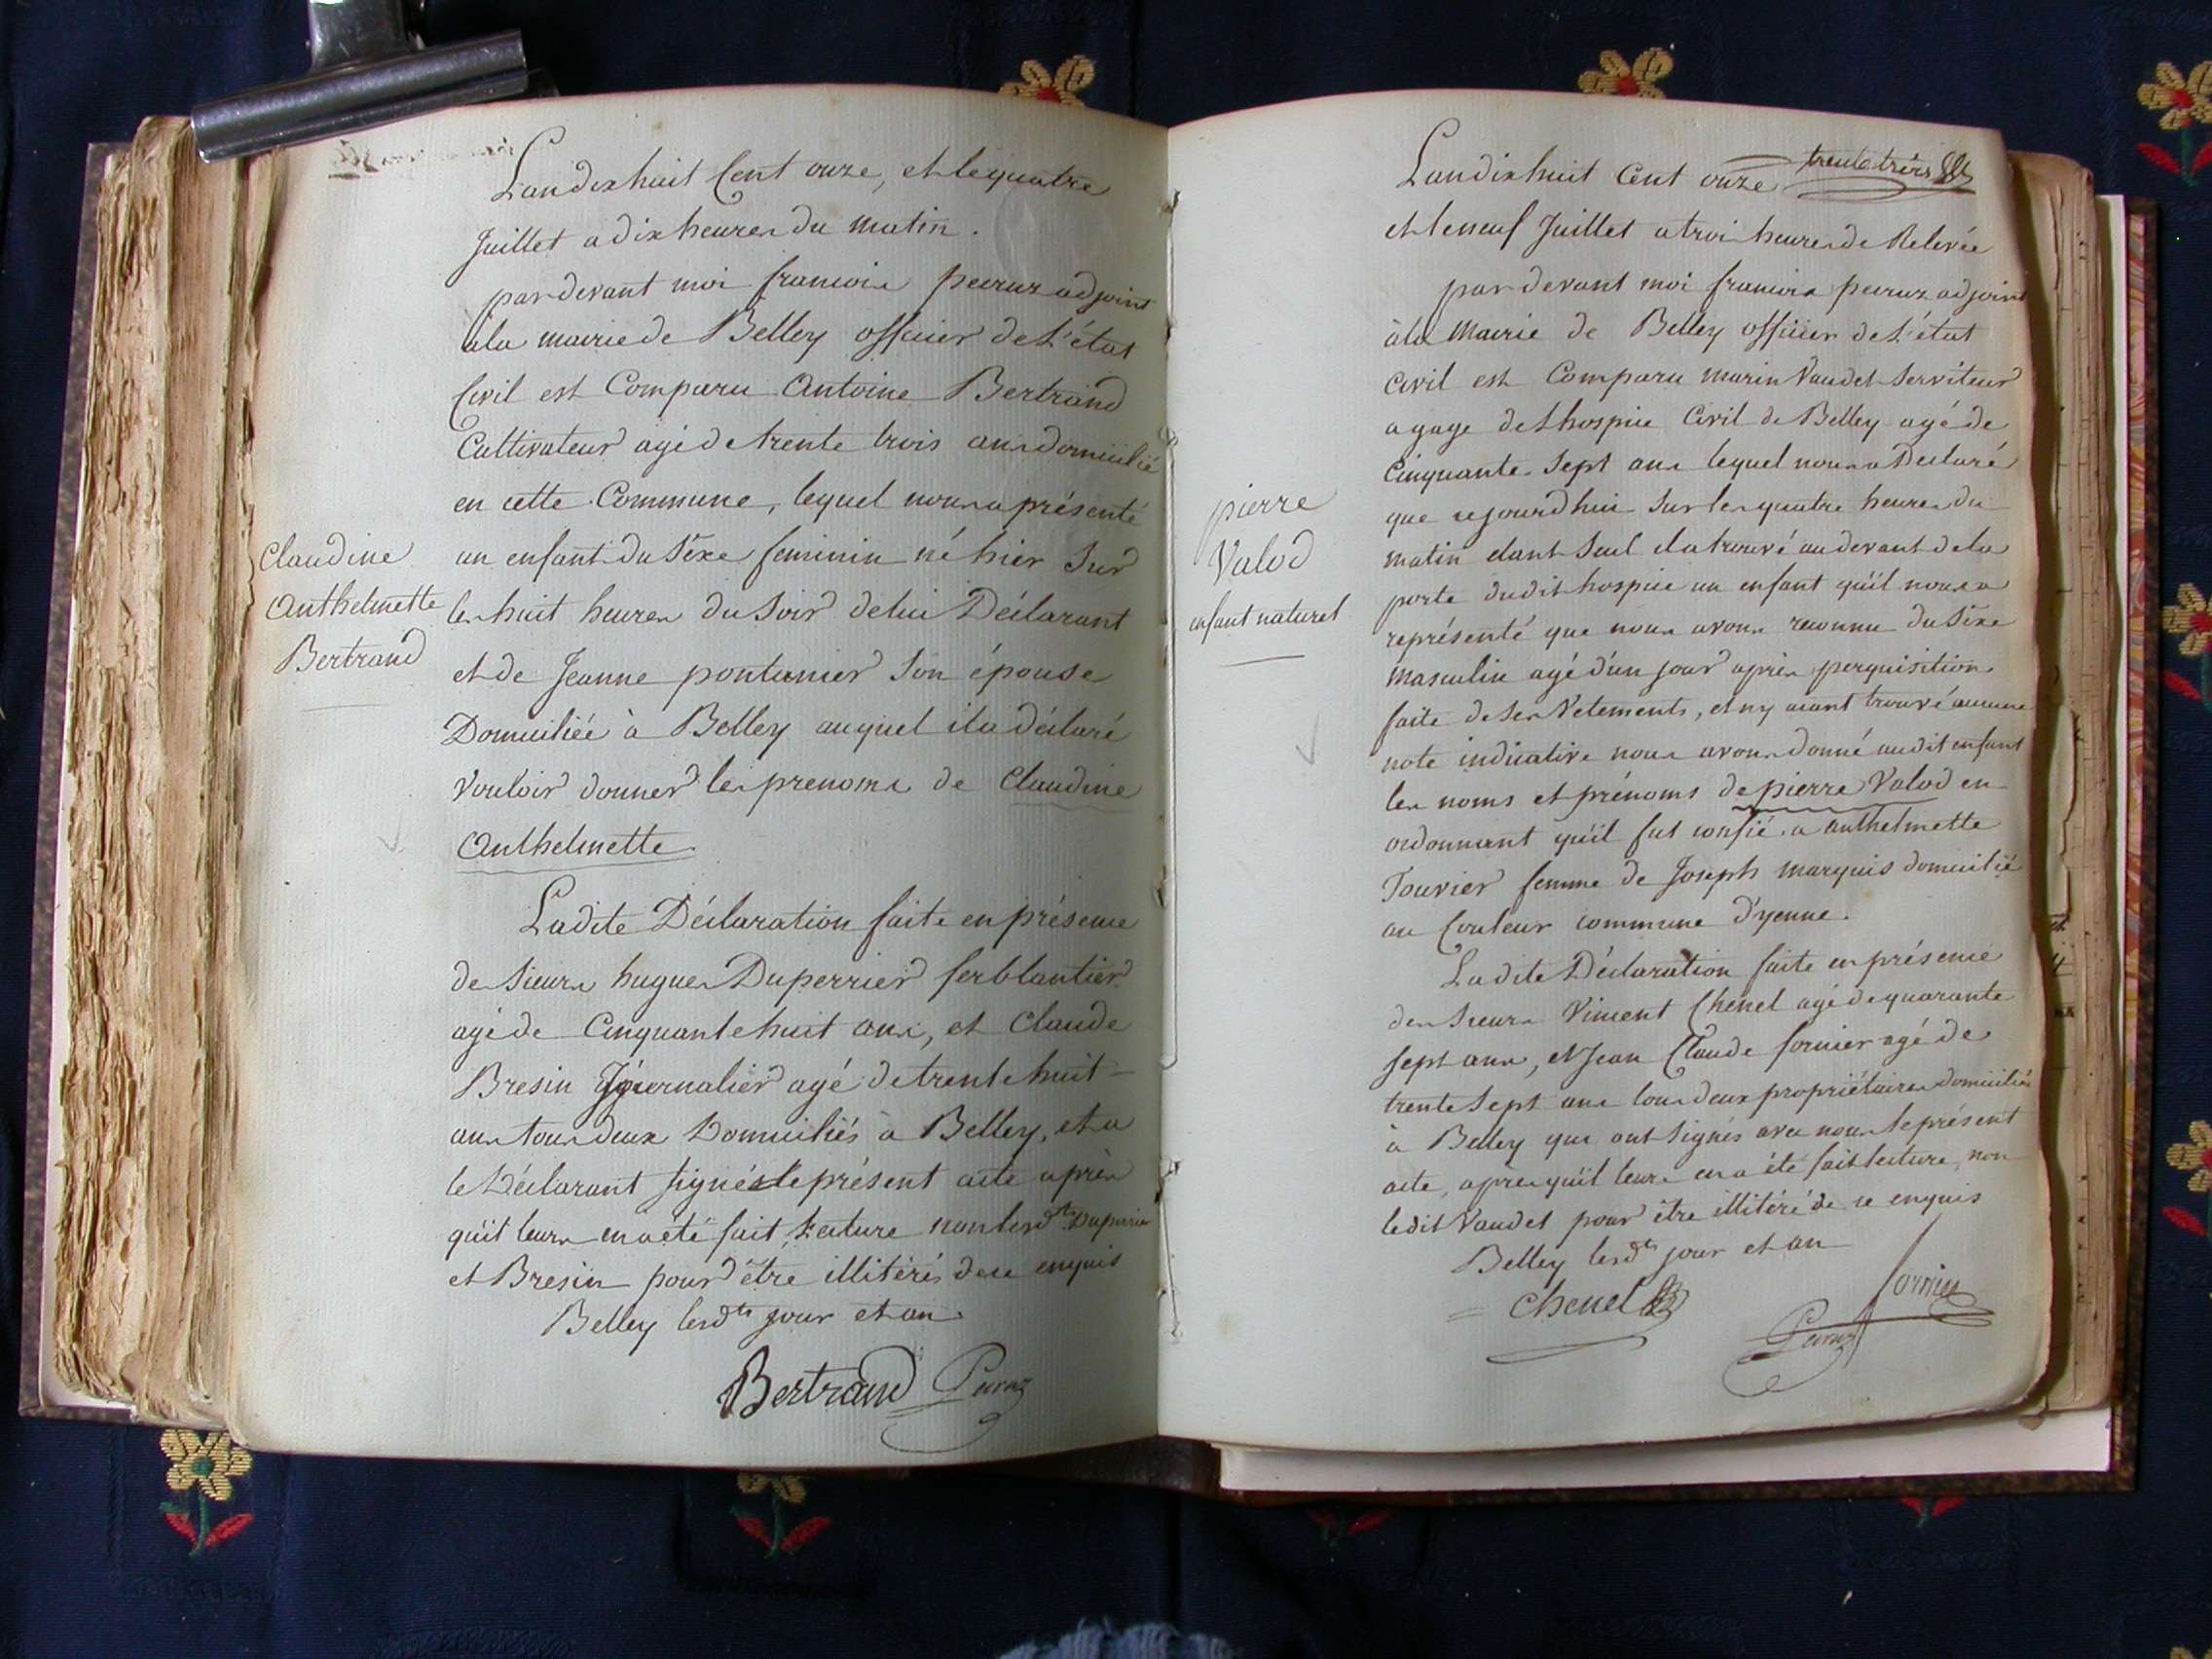 L'an dix huit Cent onze, et le quatre
Juillet a dix heures du matin.
par devant moi francois peeruz adjoint
a la mairie de Belley officier de L'état
Civil est Comparu Antoine Bertrand
Cultivateur agé de trente trois ans domicilié
en cette Commune, lequel nous a présenté
un enfant du séxe feminin né hier sur
les huit heures du soir de lui Déclarant
et de Jeanne pontanier son épouse
Domiciliée à Belley auquel il a déclaré
vouloir donner les prenoms de Claudine
Anthelmette.
Claudine
Anthelmette
Bertrand
La dite Déclaration faite en présence
de sieurs hugues Duperrier ferblantier
agé de Cinquante huit ans, et Claude
Bresin Journalier agé de trente huit
ans tous deux Domiciliés à Belley, et a
le Déclarant signé le présent acte après
qu'il leurs en a eté fait Lecture non lesdts Duperrier
et Bresin pour être illitérés de ce enquis
Belley lesdts jour et an
Bertrand Peeruz
trente trois
L'an dix huit Cent onze
et le neuf Juillet a trois heures de Relevée
par devant moi francois peeruz adjoint
à la Mairie de Belley officier de L'état
Civil est Comparu marin Vaudet serviteur
a gage de Lhospice Civil de Belley agé de
Cinquante sept ans lequel nous a Declaré
que cejourdhui sur les quatre heures du
matin etant seul il a trouvé au devant de la
porte dudit hospice un enfant qu'il nous a
représenté que nous avons reconnu du séxe
Masculin agé d'un jour après perquisition
faite de ses Vetements, et ny aiant trouvé aucune
note indicative nous avons donné audit enfant
les noms et prénoms de pierre Valod en
ordonnant qu'il fut confié a anthelmette
Touvier femme de Joseph marquis domicilié
au Couleur commune D'yenne.
pierre
Valod
enfant naturel
La dite Déclaration faite en présence
des sieurs Vincent Chenel agé de quarante
sept ans, et Jean Claude fornier agé de
trente sept ans tous deux propriétaires domiciliés
à Belley qui ont signés avec nous le présent
acte, après qu'il leurs en a été fait lecture, non
ledit Vaudet pour être illitéré de ce enquis
Belley lesdts jour et an
Chenel
fornier
Peeruz